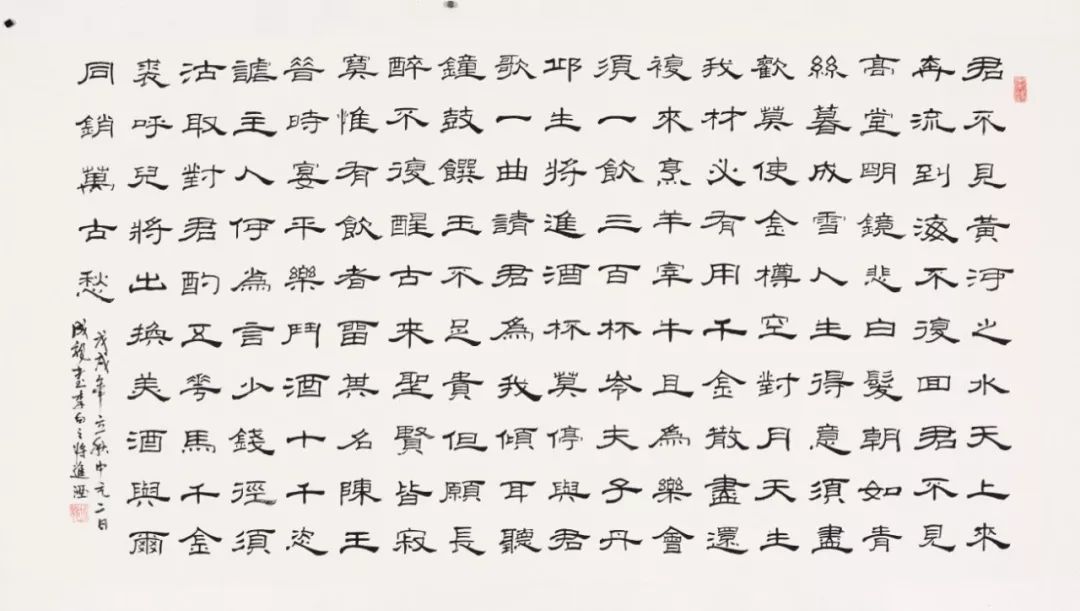 君不見黃河之水天上來
奔流到海不復回君不見
高堂明鏡悲白髮朝如青
絲暮成雪人生得意須盡
歡莫使金樽空對月天生
我材必有用千金散盡還
複來烹羊宰牛且為樂會
須一飲三百杯岑夫子丹
邱生將進酒杯莫停與君
歌一曲請君為我傾耳聽
鐘鼓饌玉不足貴但願長
醉不復醒古來聖賢皆寂
寞惟有飲者留其名陳王
昔時宴平樂鬥酒十千恣
謔主人何為言少錢徑須
沽取對君酌五花馬千金
裘呼兒將出換美酒與爾
同銷萬古愁
戊戌年立秋中元二日
書李白之將進酒